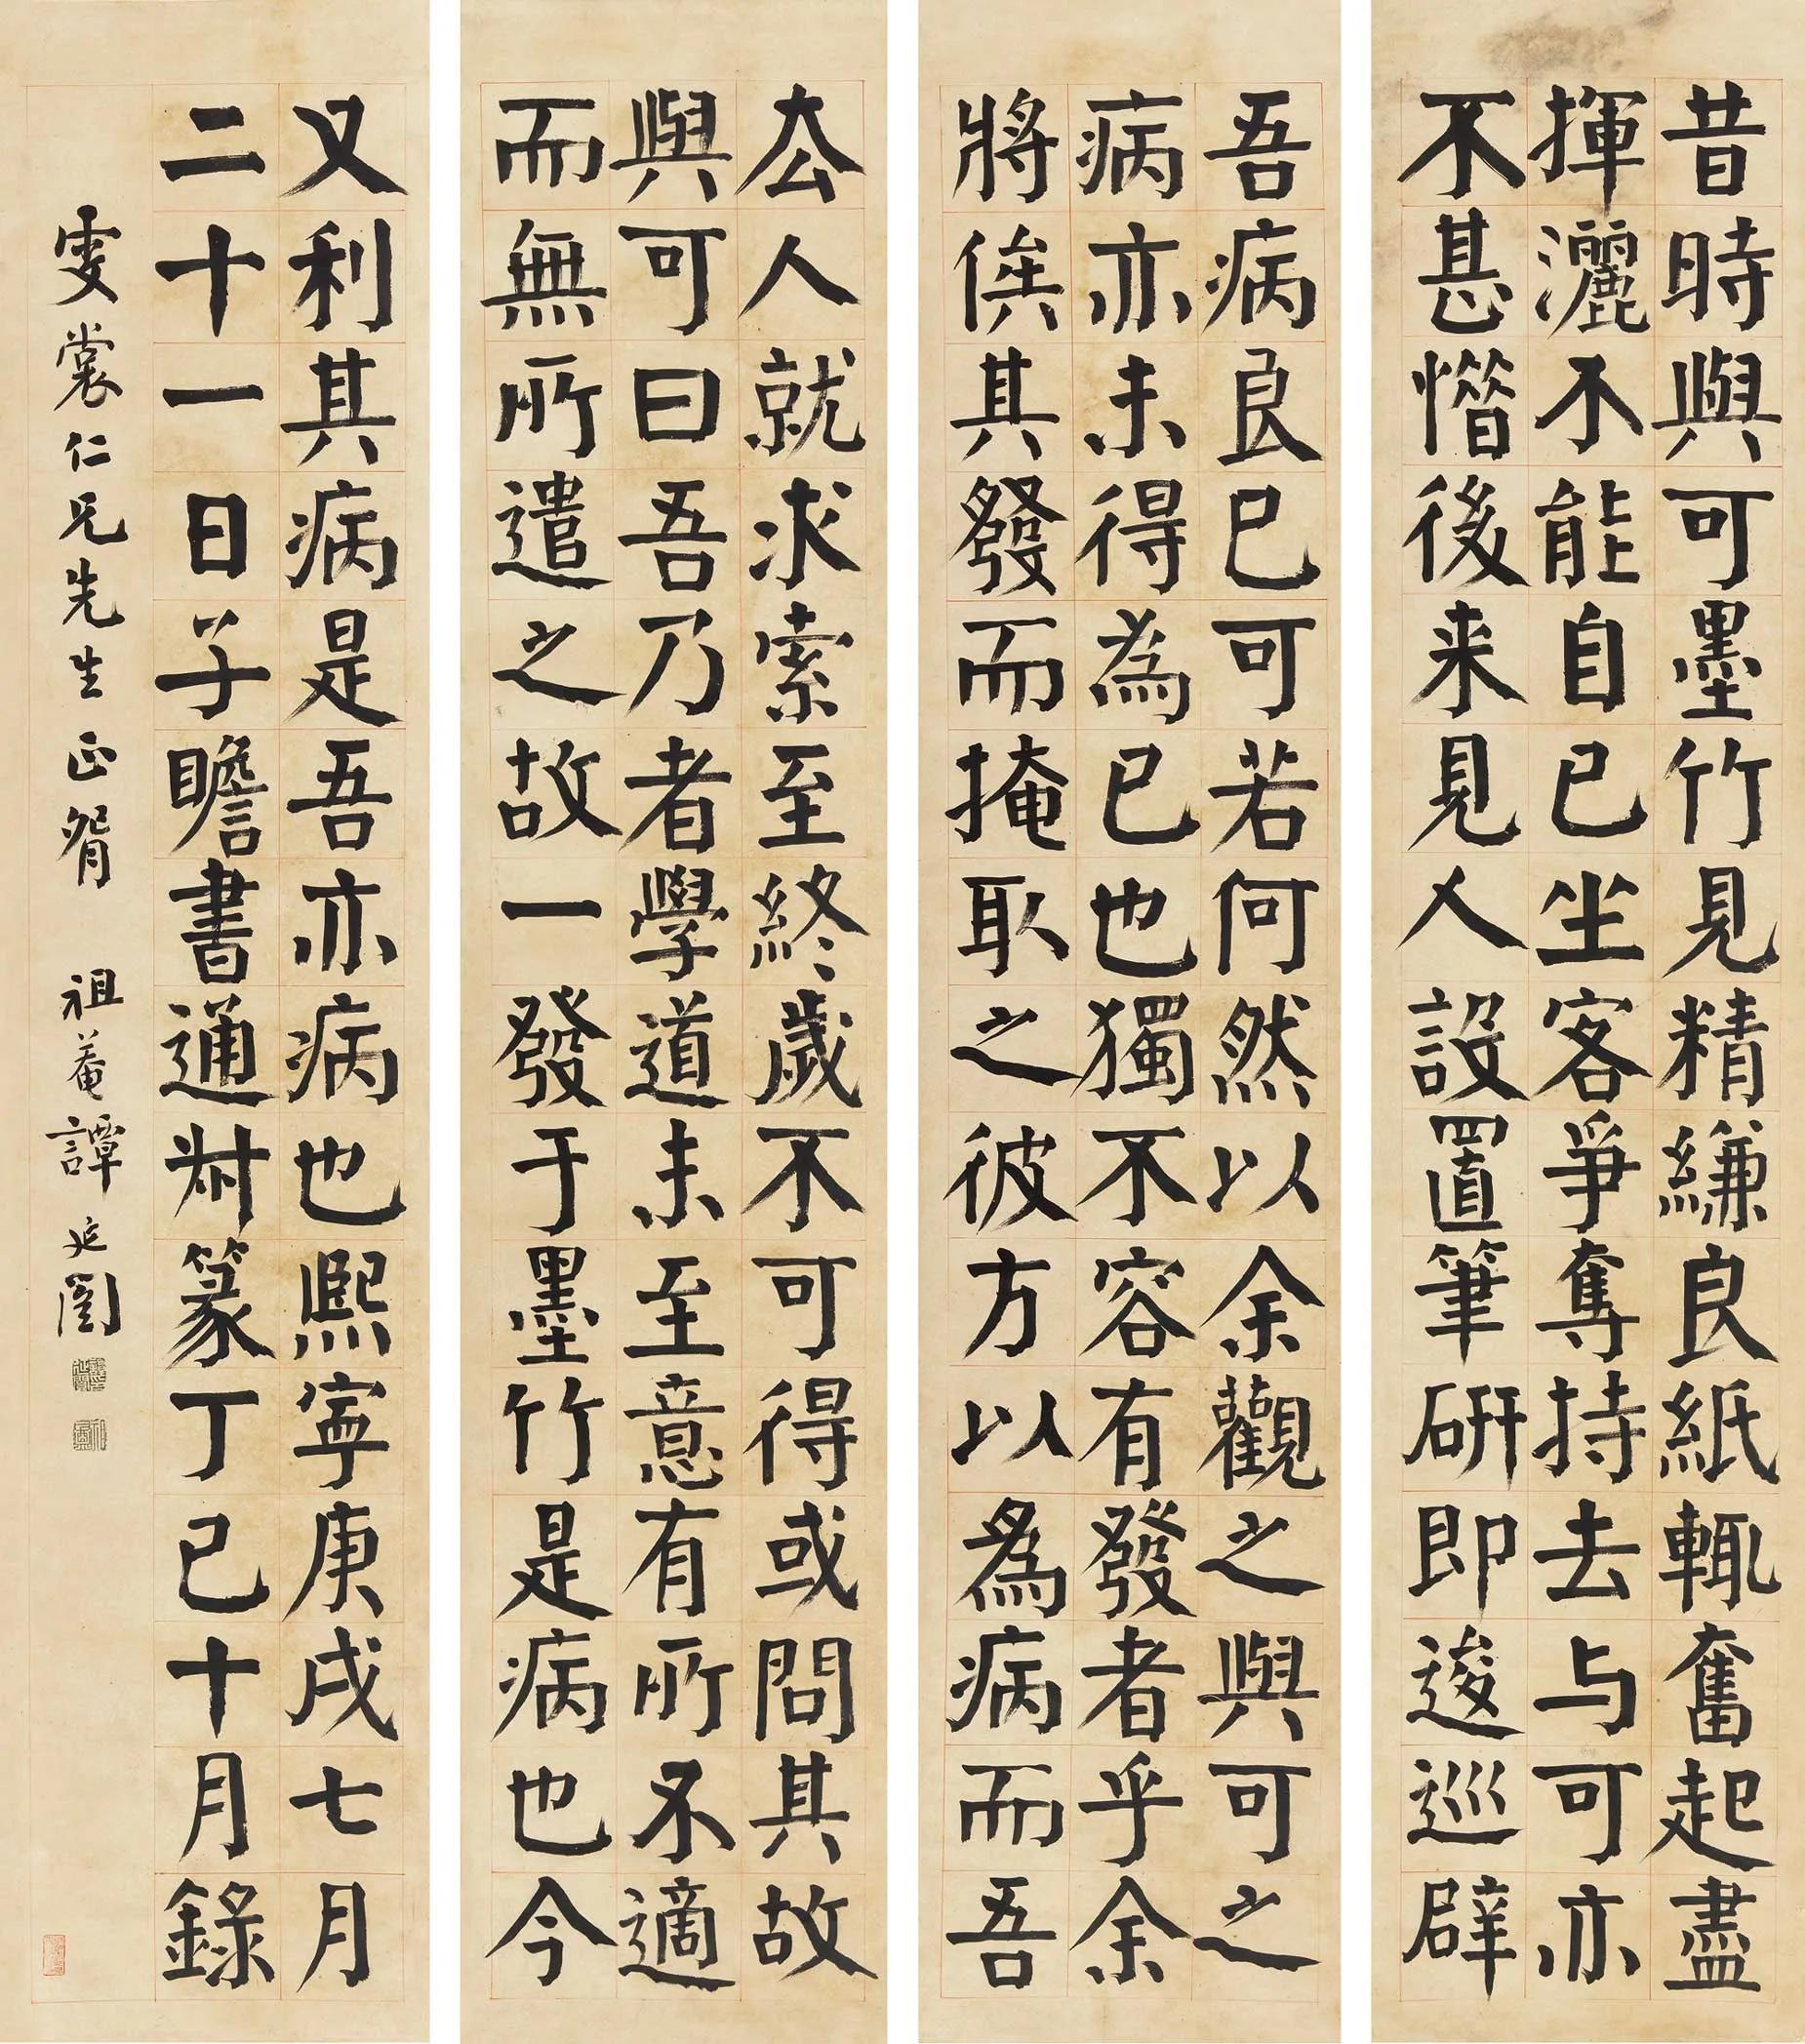 昔時與可墨竹見精縑良紙輒奮起盡
揮灑不能自已坐客爭奪持去与可亦
不甚惜後来見人設置筆硏即逡巡辟
吾病良已可若何然以余觀之與可之
病亦未得為已也獨不容有發者乎余
將俟其發而掩取之彼方以為病而吾
厺人就求索至終歲不可得或問其故
與可曰吾乃者學道未至意有所不適
而無所遣之故一發于墨竹是病也今
又利其病是吾亦病也熙寧庚戌七月
二十一日子瞻書通尌篆丁巳十月錄
雯裳仁兄先生正腕 祖菴譚延闓